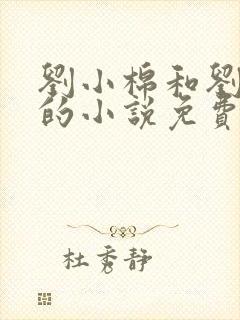 劉小棉和劉
的小說免費
杜秀靜